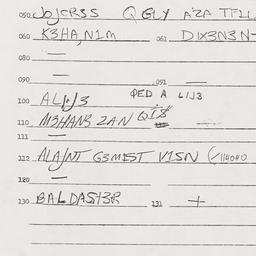 050 JOJCRSS QGLY A'ZA TFLL
060 K3HA,N1M 061 D1X3N3N-
080 —
090 — 091 —
100 ALI,J3 ΦED A L1J3
110 M3HAN3 ZAN QI8
111 —
112 ALAJNT G3M1ST V1SN (/114040
120 —
130 BALDAST3R 131 +